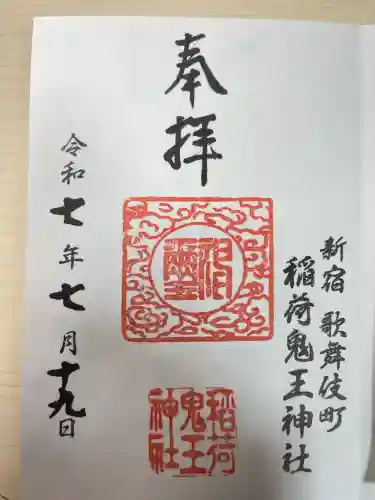 新宿 歌舞伎町
稲荷鬼王神社
奉拝
稲荷
鬼王
神社
令和七年七月十九日